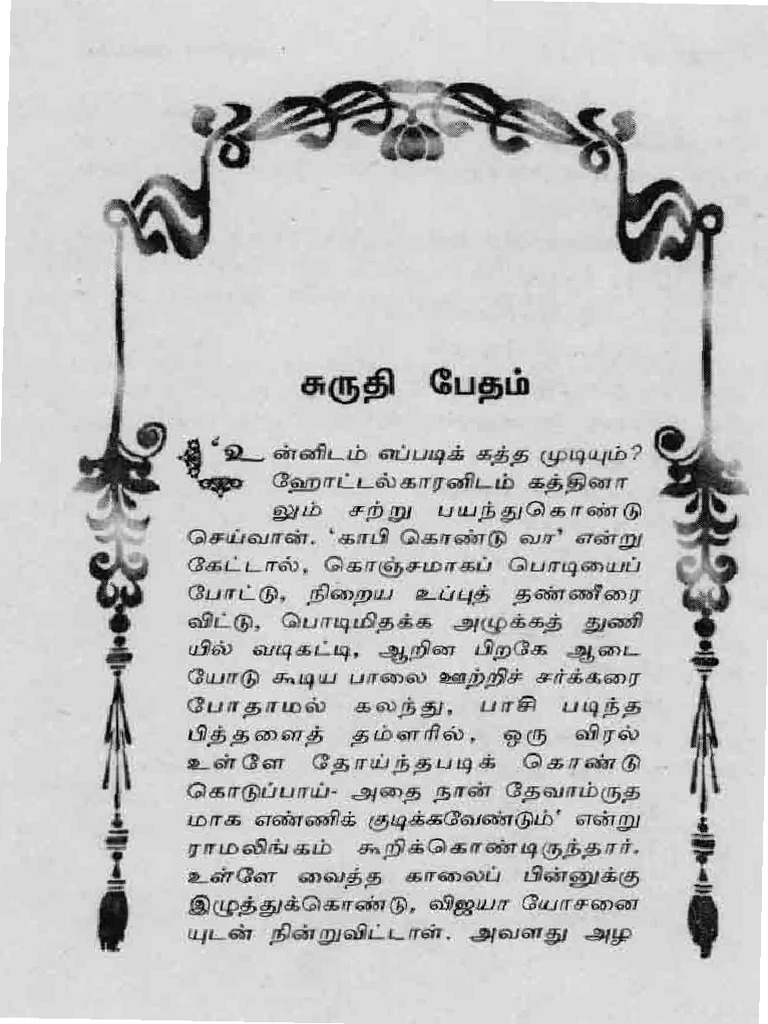 சுருதி பேதம்
'உன்னிடம் எப்படிக் கத்த முடியும்?
ஹோட்டல்காரனிடம் கத்தினா
லும் சற்று பயந்துகொண்டு
செய்வான். 'காபி கொண்டு வா' என்று
கேட்டால், கொஞ்சமாகப் பொடியைப்
போட்டு, நிறைய உப்புத் தண்ணீரை
விட்டு, பொடிமிதக்க அழுக்கத் துணி
யில் வடிகட்டி, ஆறின பிறகே ஆடை
யோடு கூடிய பாலை ஊற்றிச் சர்க்கரை
போதாமல் கலந்து, பாசி படிந்த
பித்தளைத் தம்ளரில், ஒரு விரல்
உள்ளே தோய்ந்தபடிக் கொண்டு
கொடுப்பாய்- அதை நான் தேவாம்ருத
மாக எண்ணிக் குடிக்கவேண்டும்' என்று
ராமலிங்கம் கூறிக்கொண்டிருந்தார்.
உள்ளே வைத்த காலைப் பின்னுக்கு
இழுத்துக்கொண்டு, விஜயா யோசனை
யுடன் நின்றுவிட்டாள். அவளது அழ